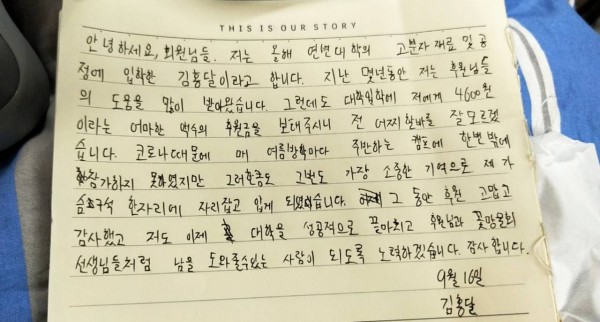 THIS IS OUR STORY
안녕하세요, 회원님들. 저는 올해 연변대학의 고분자 재료 및 공
정에 입학한 김홍달이라고 합니다. 지난 몇년동안 저는 후원님들
의 도움을 많이 받아왔습니다. 그런데도 대학입학에 저에게 4600원
이라는 어마한 액수의 후원금을 보태주시니 전 어찌할바를 잘 모르겠
습니다. 코로나때문에 매 여름방학마다 주반하는 캠프에 한번밖에
참가하지 못하였지만 그러한줌도 그번도 가장 소중한 기억으로 제 가
슴구석 한자리에 자리잡고 있게 되였습니다. 그 동안 후원 고맙고
감사했고 저도 이제 대학을 성공적으로 끝마치고 후원님과 꽃망울회
선생님들처럼 남을 도와줄수있는 사람이 되도록 노력하겠습니다. 감사합니다.
9월 16일
김홍달